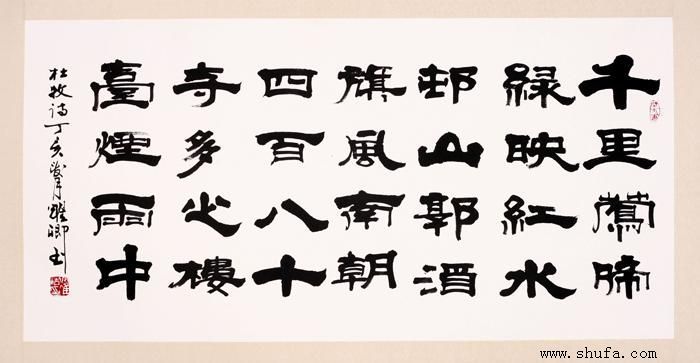 千里鶯啼
緑映紅水
邨山郭酒
旗風南朝
四百八十
寺多少樓
臺煙雨中
杜牧诗丁亥
www.shufa.com